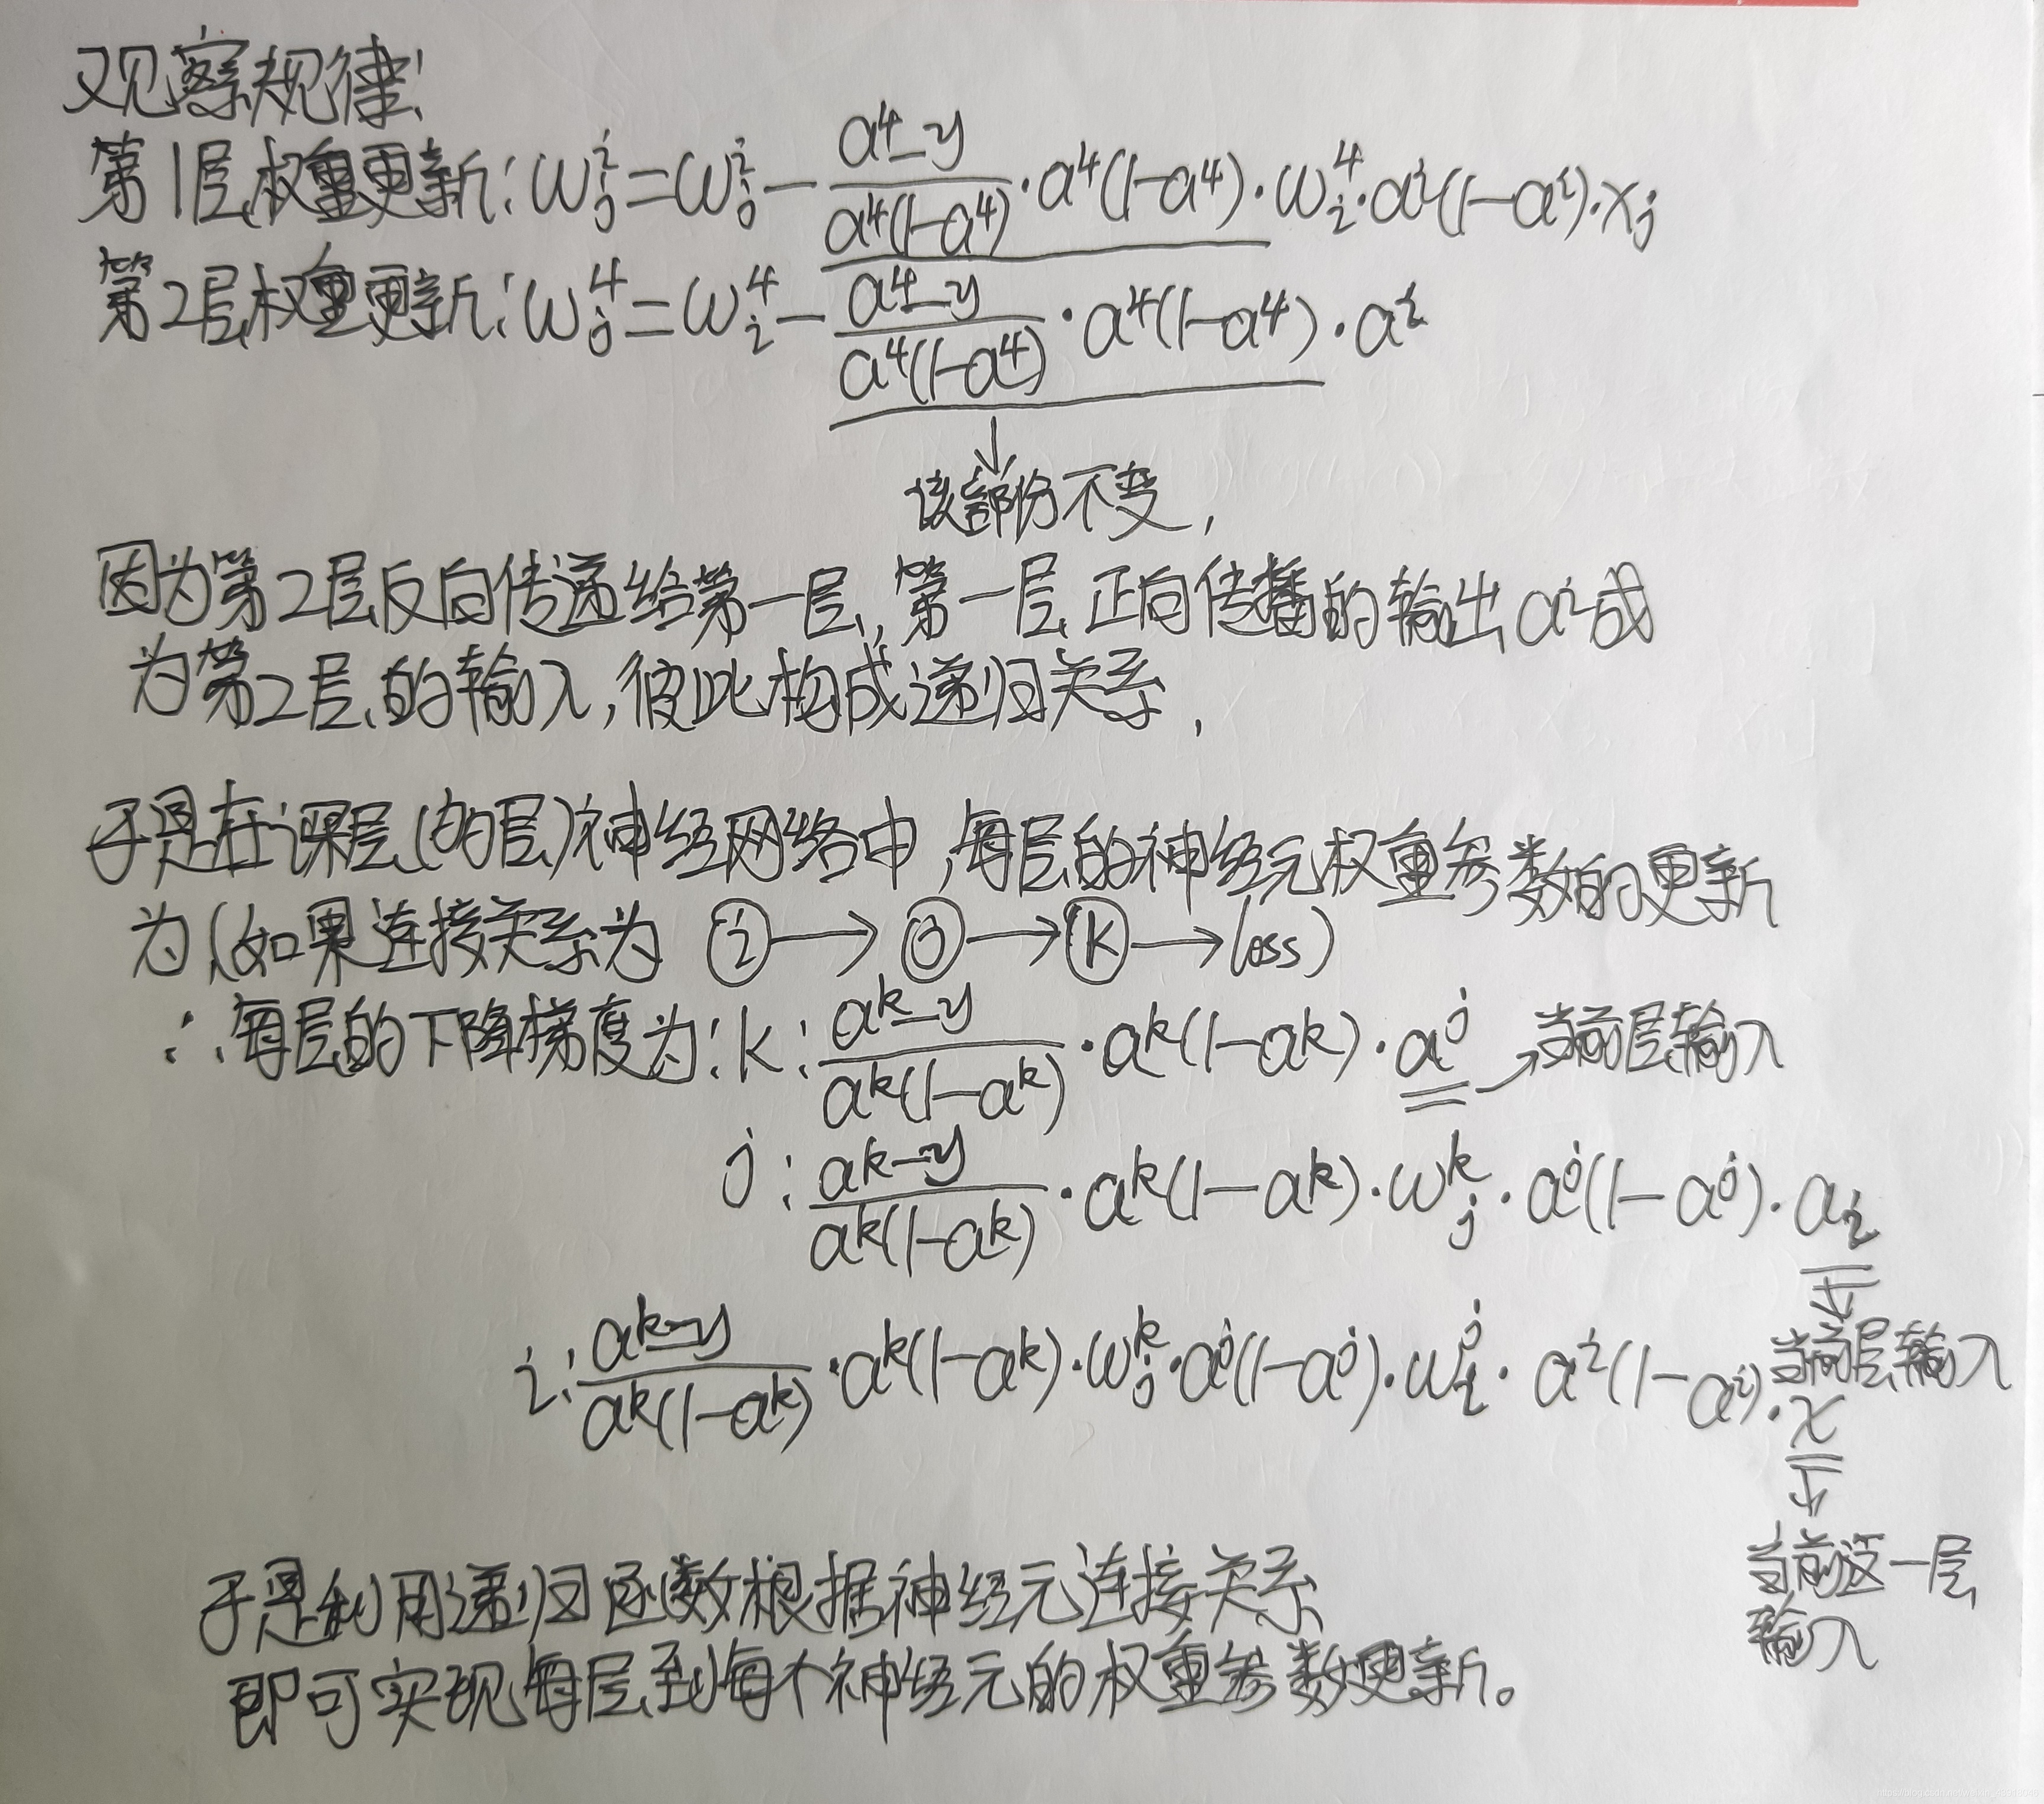 观察规律:
第1层权重更新: w_j^i = w_j^i - \frac{a^4-y}{a^4(1-a^4)} · a^4(1-a^4) · w_i^4 · a^i(1-a^i) · x_j
第2层权重更新: w_j^4 = w_i^4 - \frac{a^4-y}{a^4(1-a^4)} · a^4(1-a^4) · a^i
↓
该部份不变,
因为第2层反向传递给第一层, 第一层正向传播的输出 a^i 成
为第2层的输入, 彼此构成递归关系,
于是在深层(的层)神经网络中, 每层的神经元权重参数的更新
为(如果连接关系为 ⓘ → ⓙ → ⓚ → loss)
∴ 每层的下降梯度为: k: \frac{a^k-y}{a^k(1-a^k)} · a^k(1-a^k) · a^j → 当前层输入
j: \frac{a^k-y}{a^k(1-a^k)} · a^k(1-a^k) · w_j^k · a^j(1-a^j) · a_i
↓
当前层输入
i: \frac{a^k-y}{a^k(1-a^k)} · a^k(1-a^k) · w_j^k · a^j(1-a^j) · w_i^j · a^i(1-a^i) · x
↓
当前这一层
输入
于是利用递归函数根据神经元连接关系
即可实现每层到每个神经元的权重参数更新。